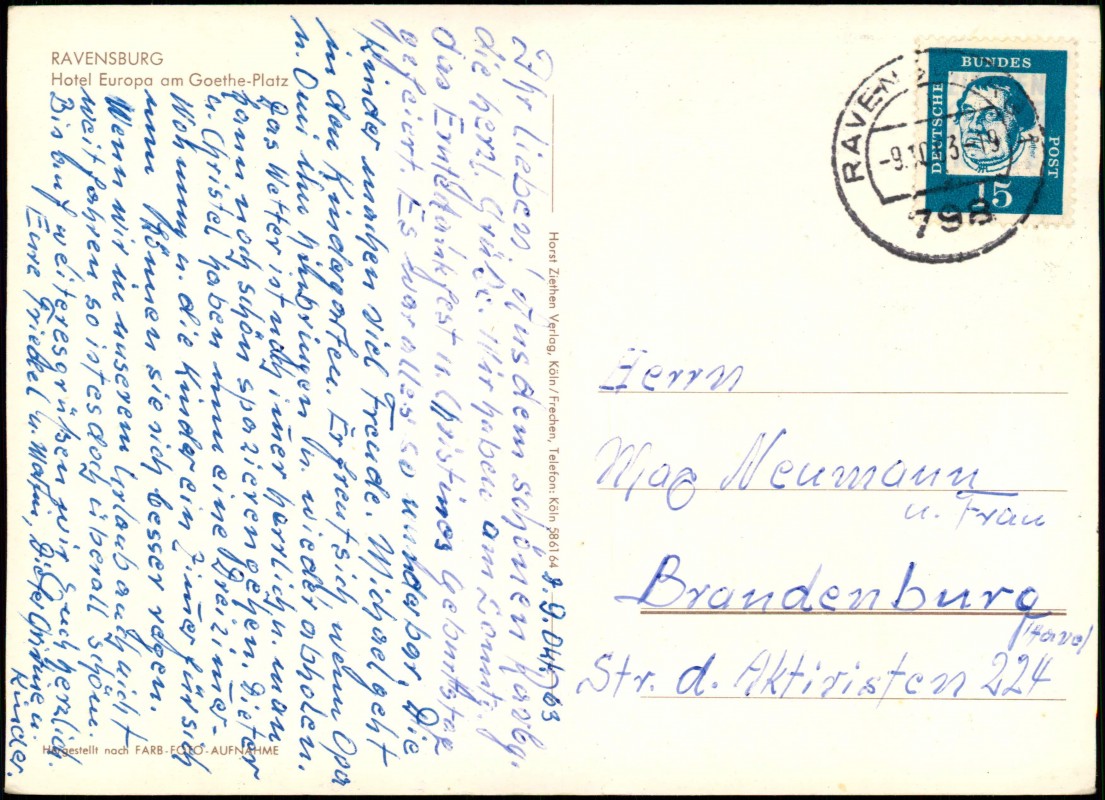 RAVENSBURG
Hotel Europa am Goethe-Platz
8. 9. Okt. 63
Ihr Lieben! Aus dem schönen Ravbg.
die herzl. Grüße. Wir haben am Sonntg.
das Erntedankfest u. Christines Geburtstag
gefeiert. Es war alles so wunderbar, die
Kinder machen viel Freude. Michael geht
in den Kindergarten. Er freut sich wenn Opa
u. Omi ihn hinbringen u. wieder abholen.
Das Wetter ist noch imer herrlich u. man
kann noch schön spazieren gehen. Dieter
u. Christel haben nun eine Dreizimer-
Wohnung u. die Kinder ein Zimer für sich
nun können sie sich besser regen.
Wenn wir in unserem Urlaub auch nicht
weit fahren so ist es doch überall schön.
Bin auf weiteres grüßen wir Euch herzlich.
Eure Friedel u. Martin, Dieter, Christel u.
Kinder.
Hergestellt nach FARB-FOTO-AUFNAHME
Horst Ziethen Verlag, Köln/Frechen, Telefon: Köln 586164
DEUTSCHE BUNDES POST
15
RAVEN
-9.10. 3-19
798
Herrn
Max Neumann
u. Frau
Brandenburg
Havel
Str. d. Aktivisten 224